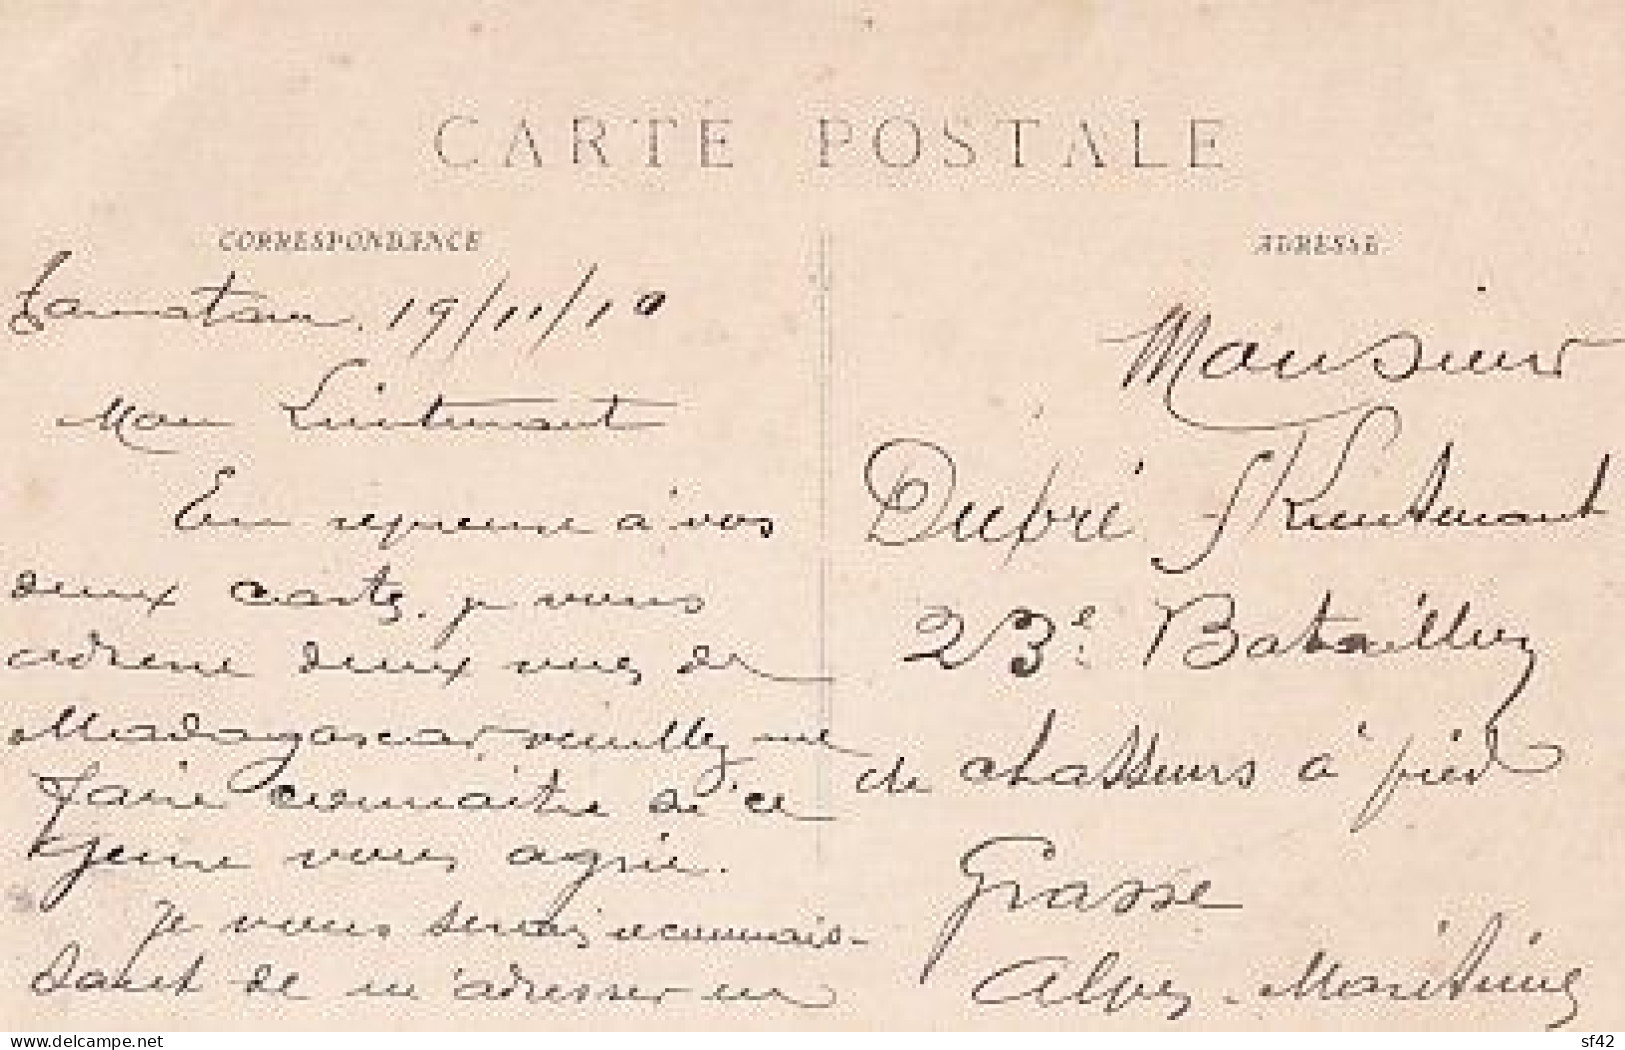 CARTE POSTALE
CORRESPONDANCE
Tamatave. 19/11/10
Mon Lieutenant
En reponse à vos
deux cartes. je vous
adresse deux vues de
Madagascar veuillez me
faire connaître si ce
genre vous agrée.
Je vous serais reconnais-
sant de m'adresser en
ADRESSE
Monsieur
Dupré S/Lieutenant
23e Bataillon
de chasseurs à pied
Grasse
Alpes-Maritimes
www.delcampe.net
sf42